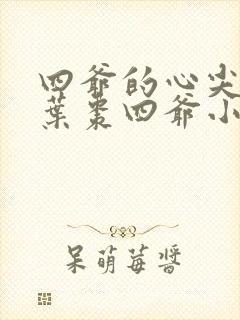 四爺的心尖
葉棗四爺小
呆萌莓醬